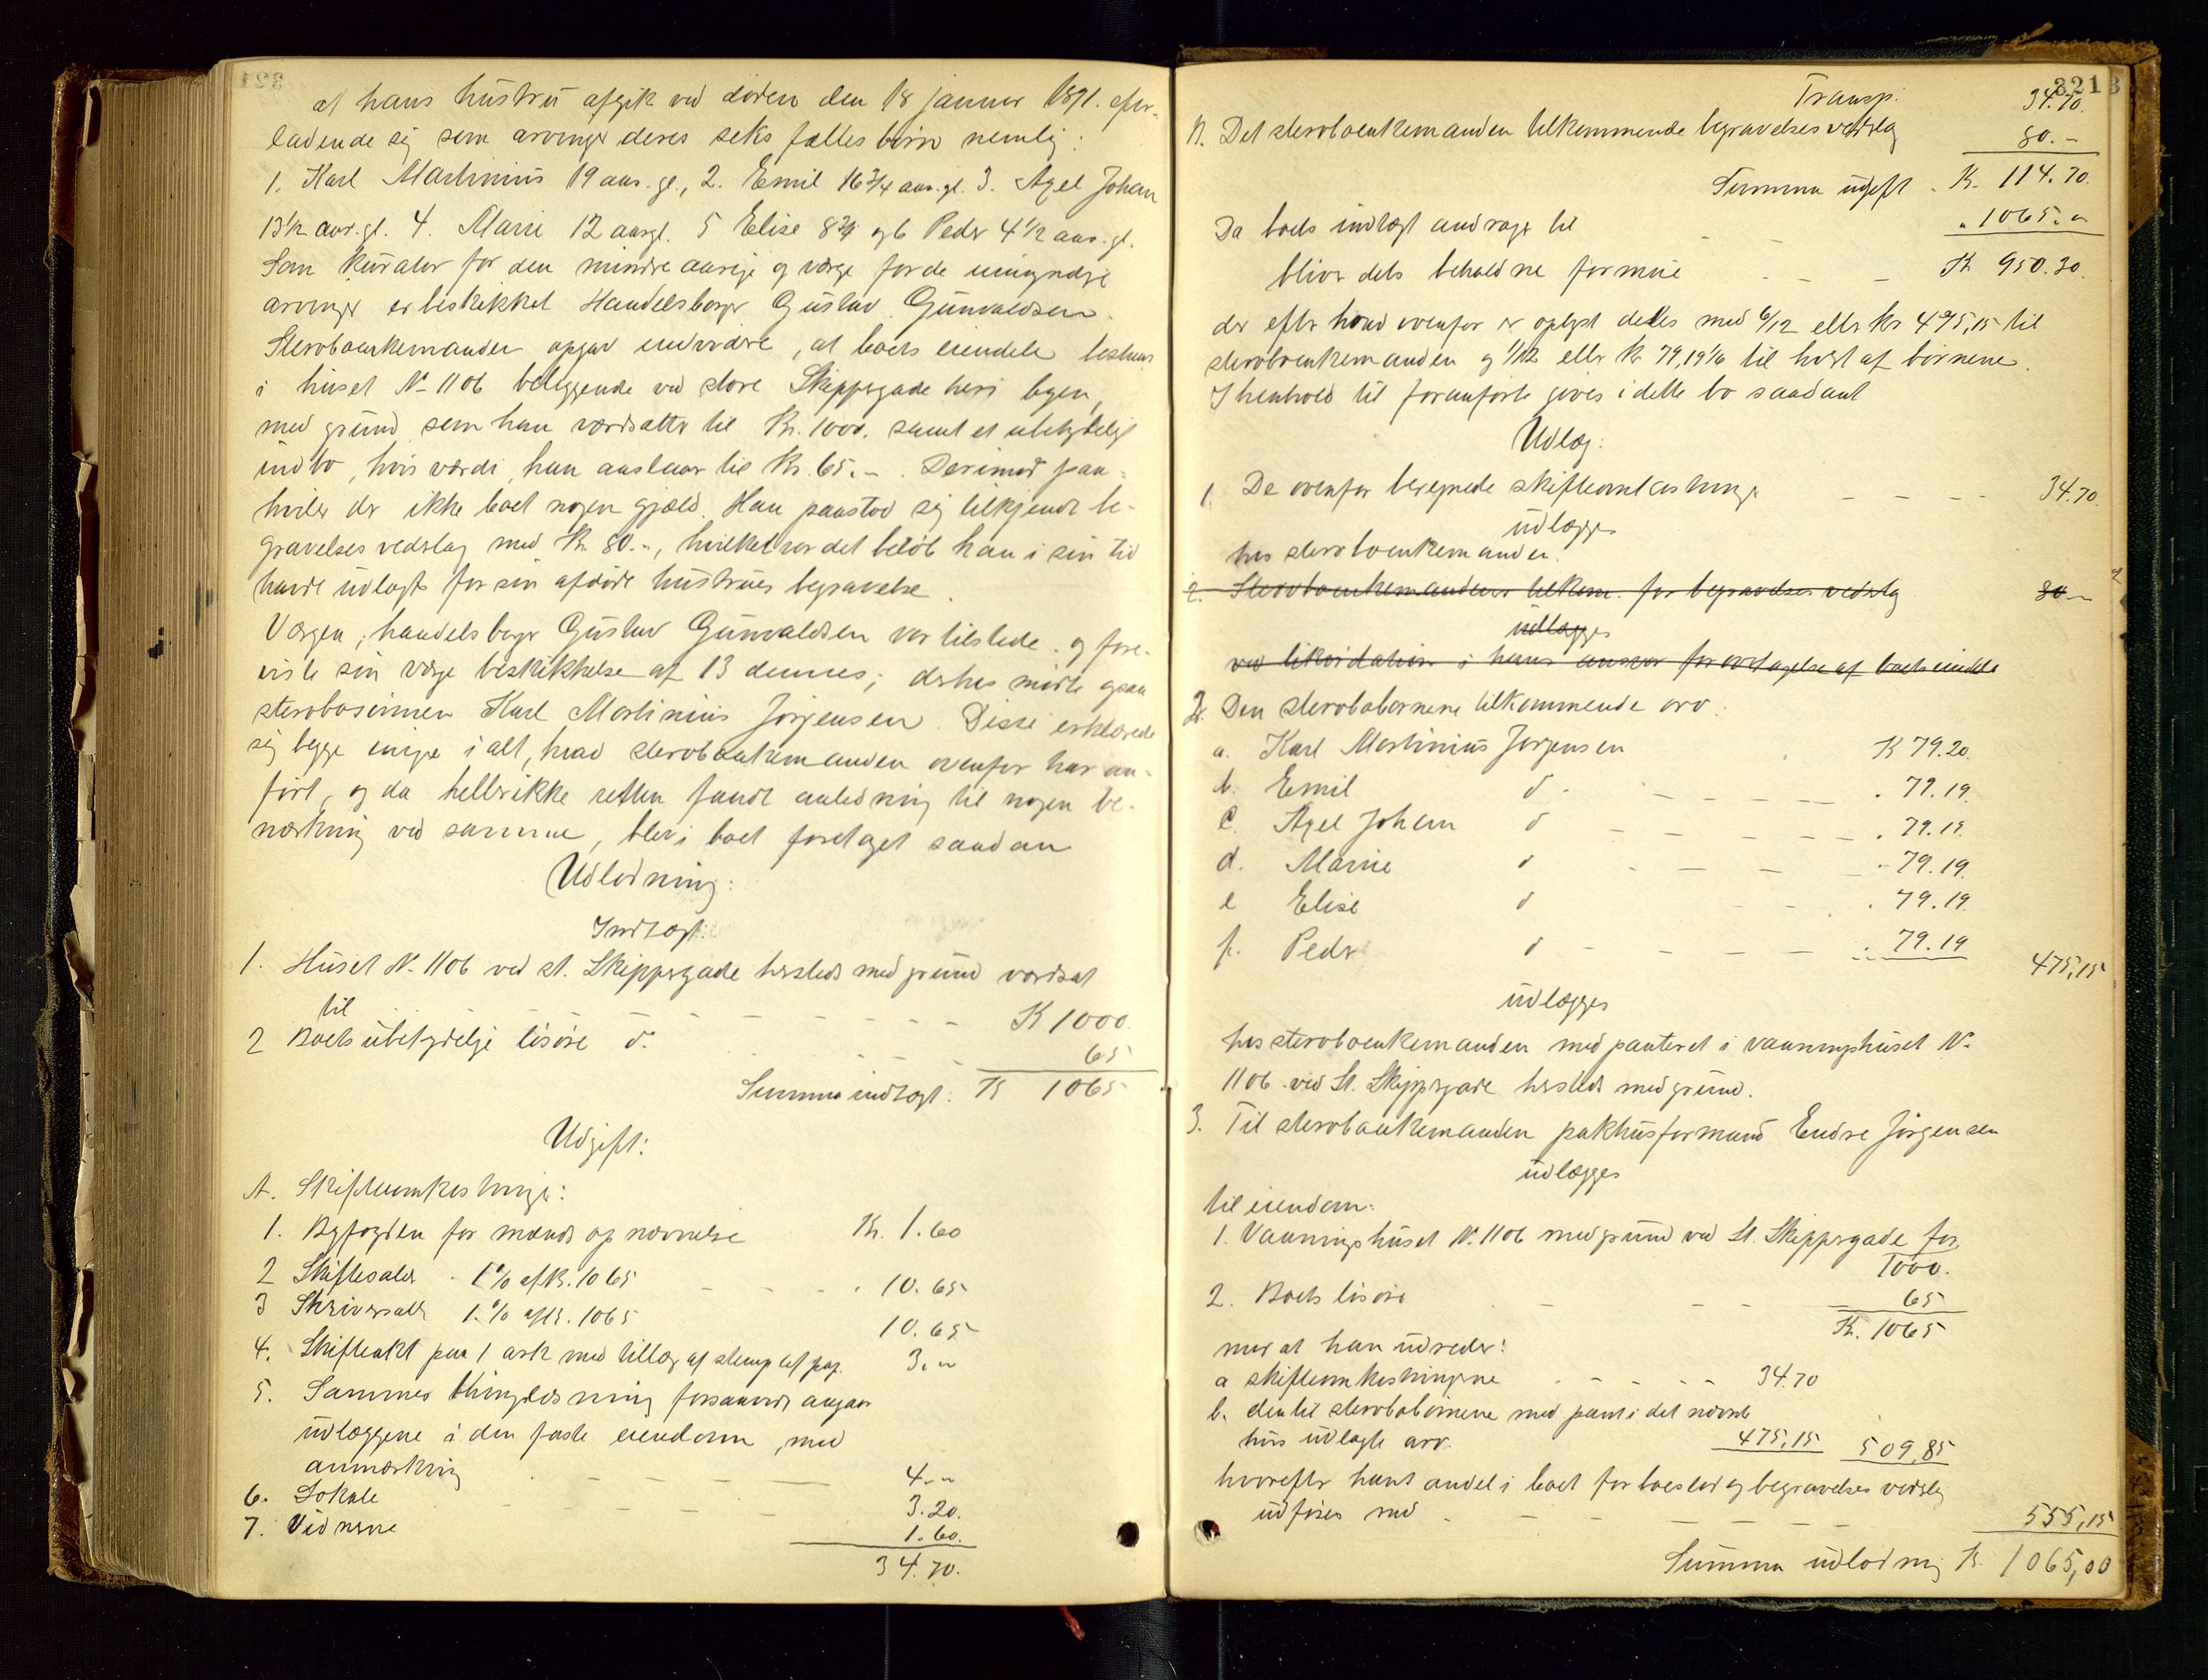 at hans hustru afgik ved døden den 18 januar 1891. efter-
ladende sig som arvinger deres seks fælles børn nemlig:
1. Karl Martinius 19 aar. gl., 2. Emil 16 3/4 aar. gl. 3. Axel Johan
13 1/2 aar. gl. 4. Marie 12 aar gl. 5 Elise 8 3/4 og 6 Peder 4 1/2 aar. gl.
Som kurator for den mindreaarige og værge for de umyndige
arvinger er beskikket Handelsborger Gustav Gunvaldsen.
Stervboenkemanden opgav endvidere, at boets eiendele bestaar
i huset No 1106 beliggende ved store Skippergade heri byen,
med grund som han værdsatte til Kr. 1000. samt et ubetydeligt
indbo, hvis værdi han anslaar til Kr. 65.- . Derimod paa-
hviler der ikke boet nogen gjæld. Han paastod sig tilkjendt be-
gravelsesvederlag med Kr 80.-, hvilket var det beløb han i sin tid
havde udlagt for sin afdøde hustrues begravelse.
Værgen, handelsborger Gustav Gunvaldsen var tilstede og fore-
viste sin værge beskikkelse af 13 dennes; derhos mødte ogsaa
stervbosønnen Karl Martinius Jørgensen. Disse erklærede
sig begge enige i alt, hvad stervboenkemanden ovenfor har an-
ført, og da heller ikke retten fandt anledning til nogen be-
mærkning ved samme, blev i boet foretaget saadan
Udlodning:
Indtægt:
1. Huset No 1106 ved st. Skippergade hersteds med grund værdsat
til - - - - - - - K 1000.
2 Boets ubetydelige løsøre do. - - - - 65
Summa indtægt: K 1065
Udgift:
A. Skifteomkostninger:
1. Byfogden for mænds opnævnelse Kr. 1.60
2 Skiftesalær 1% af K. 1065 - - - 10.65
3 Skriversalær 1.% af K. 1065 10.65
4. Skifteakt paa 1 ark med tillæg af stemplet pap. 3.-
5. Sammes thinglæsning forsaavidt angaar
udlæggene i den faste eiendom, med
anmærkning - - - - 4.-
6. Lokale - - - 3.20.
7. Vidnerne 1.60.
34.70.
321
Transp. 34.70.
B. Det stervboenkemanden tilkommende begravelsesvederlag 80.-
Summa udgift K. 114.70.
Da boets indtægt andrager til - - " 1065.-
bliver dets beholdne formue - - K 950.30.
der efter hvad ovenfor er oplyst deles med 6/12 eller kr 475,15 til
stervboenkemanden og 1/12 eller kr 79,19 1/6 til hvert af børnene.
I henhold til foranførte gives i dette bo saadant
Udlæg:
1. De ovenfor beregnede skifteomkostninger - - - - 34.70.
udlægges
hos stervboenkemanden.
2. Stervboenkemandens tilkom. for begravelses vederlag 80.-
udlægges
ved likvidation i hans ansvar for overtagelse af boets eiendele
2. Den stervbobørnene tilkommende arv:
a. Karl Martinius Jørgensen K 79.20.
b. Emil do - - - - - . 79.19.
c. Axel Johan do - - - - - . 79.19.
d. Marie do - - - - 79.19.
e Elise do - - . 79.19.
f. Peder do - - - - . 79.19
475,15
udlægges
hos stervboenkemanden med panteret i vaaningshuset No
1106 ved St. Skippergade hersteds med grund.
3. Til stervboenkemanden pakhusformand Endre Jørgensen
udlægges
til eiendom:
1. Vaaningshuset No. 1106 med grund ved St. Skippergade for
1000.
2. Boets løsøre - - - 65
Kr. 1065
mod at han udreder:
a skifteomkostningerne - - - - 34.70
b. den til stervbobørnene med pant i det nævnte
hus udlagte arv. 475,15 509,85
hvorefter hans andel i boet for boeslod og begravelses vederlag
udføres med - - - - - - 555,15
Summa udlodning K. 1065,00